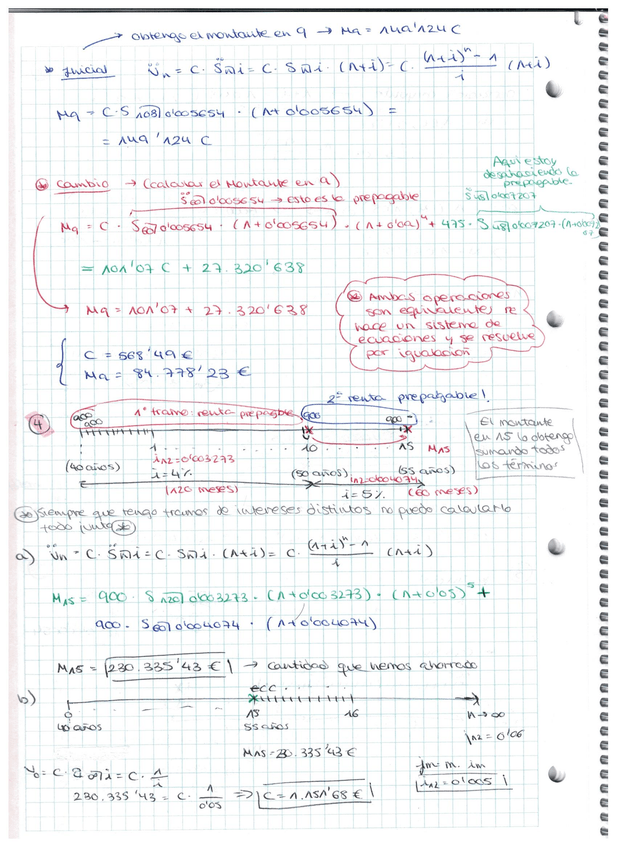 → obtengo el montante en 9 → M9 = 149'124 C
* Inicial V̈n = C · S̈n̅|i = C · Sn̅|i · (1+i) = C · ((1+i)^n - 1)/i (1+i)
M9 = C · S108̅|0'005654 · (1+0'005654) =
= 149'124 C
Aquí estoy
deshaciendo la
prepagable.
* Cambio → (calcular el Montante en 9)
S̈60̅|0'005654 → esto es la prepagable
S̈48̅|0'007207
M9 = C · S60̅|0'005654 · (1+0'005654) · (1+0'09)^4 + 475 · S48̅|0'007207 · (1+0'007207)
= 101'07 C + 27.320'638
→ M9 = 101'07 + 27.320'638
* Ambas operaciones
son equivalentes se
hace un sistema de
ecuaciones y se resuelve
por igualación
C = 568'49 €
M9 = 84.778'23 €
2ª renta prepagable!
4
900 900
1º tramo: renta prepagable
900
900
0 1 10 15 M15
i12=0'003273
(40 años) i=4% (50 años) (55 años)
i12=0'004074
(120 meses) i=5% (60 meses)
El montante
en 15 lo obtengo
sumando todos
los términos
* Siempre que tengo tramos de intereses distintos no puedo calcularlo
todo junto *
a) V̈n = C · S̈n̅|i = C · Sn̅|i · (1+i) = C · ((1+i)^n - 1)/i (1+i)
M15 = 900 · S120̅|0'003273 · (1+0'003273) · (1+0'05)^5 +
900 · S60̅|0'004074 · (1+0'004074)
M15 = 230.335'43 € → Cantidad que hemos ahorrado
b)
CCC
0 15 16 n→∞
40 años 55 años
i12 = 0'06
M15 = 230.335'43 €
V0 = C · a∞̅|i = C · 1/i
fm = m · im
230.335'43 = C · 1/0'05 ⇒ C = 1.151'68 €
i12 = 0'005